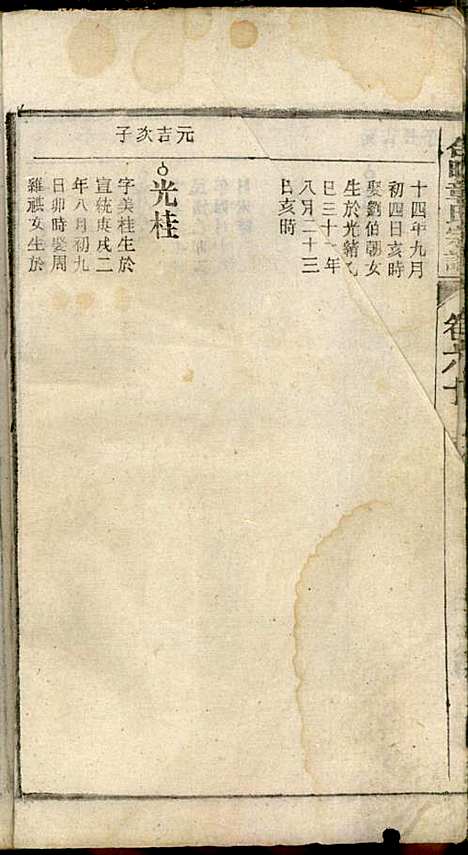 章氏宗譜
卷六十
十四年九月
初四日亥時
娶劉伯朝女
生於光緒乙
巳三十一年
八月二十三
日亥時
元吉次子
光桂
字美桂生於
宣統庚戌二
年八月初九
日卯時娶周
維祺女生於